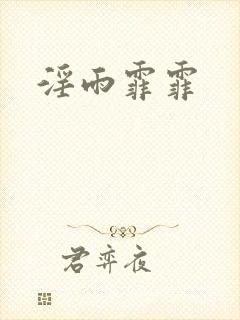 淫雨霏霏
君弈夜